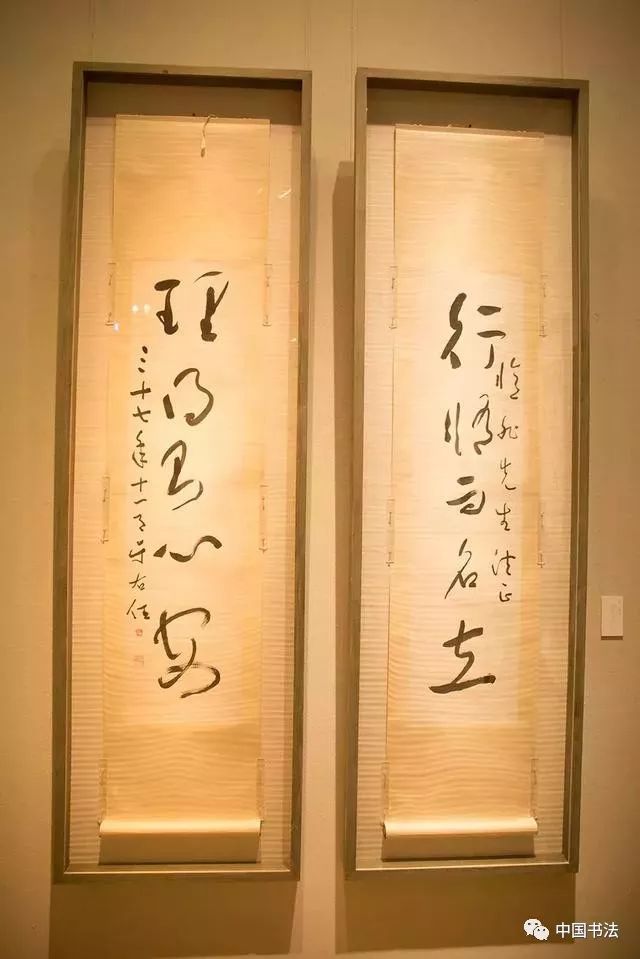 行脩而名立
先生法正
理得则心安
三十七年十一月 于右任
中国书法